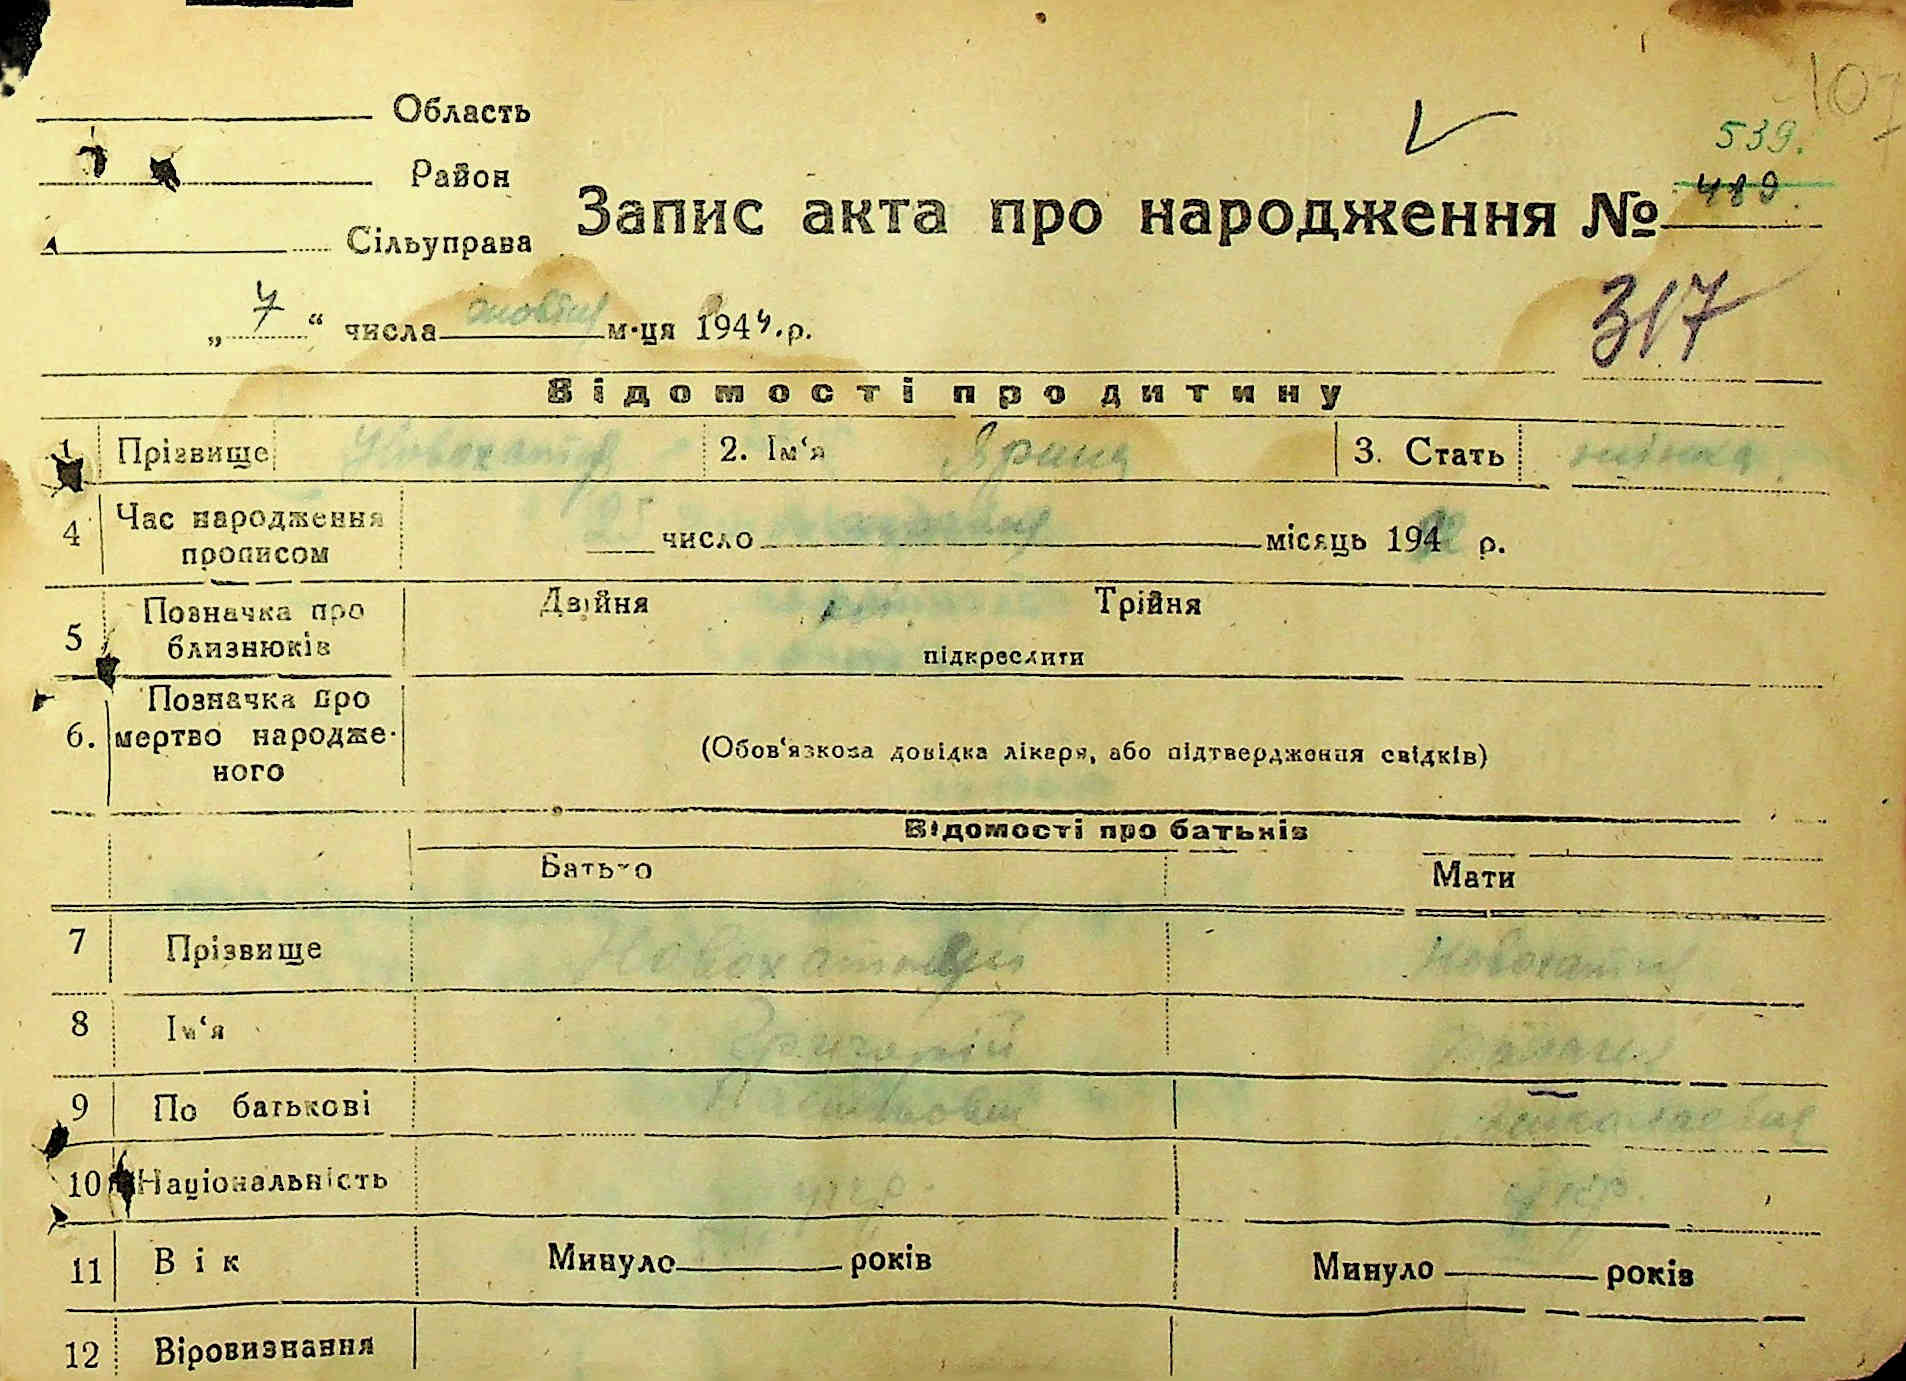 107
Область
539.
Район
489.
Запис акта про народження №
Сільуправа
317
„7“ числа жовтня м-ця 1944.р.
Відомості про дитину
1 Прізвище Новохатня 2. Ім‘я Ярина 3. Стать жінка.
4 Час народження прописом 25 число місяць 1942 р.
5 Позначка про близнюків Двійня Трійня
підкреслити
6. Позначка про мертво народже-ного (Обов‘язкова довідка лікаря, або підтвердження свідків)
Відомості про батьків
Батько Мати
7 Прізвище Новохатній Новохатня
8 Ім‘я Григорій
9 По батькові Миколаєвна
10 Національність укр. укр.
11 Вік Минуло років Минуло років
12 Віровизнання